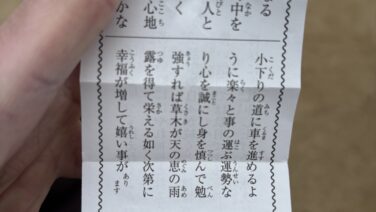 る
中を
人と
く
心地
かな
小下りの道に車を進めるよ
うに楽々と事の運ぶ運勢な
り心を誠にし身を慎んで勉
強すれば草木が天の恵の雨
露を得て栄える如く次第に
幸福が増して嬉い事があります